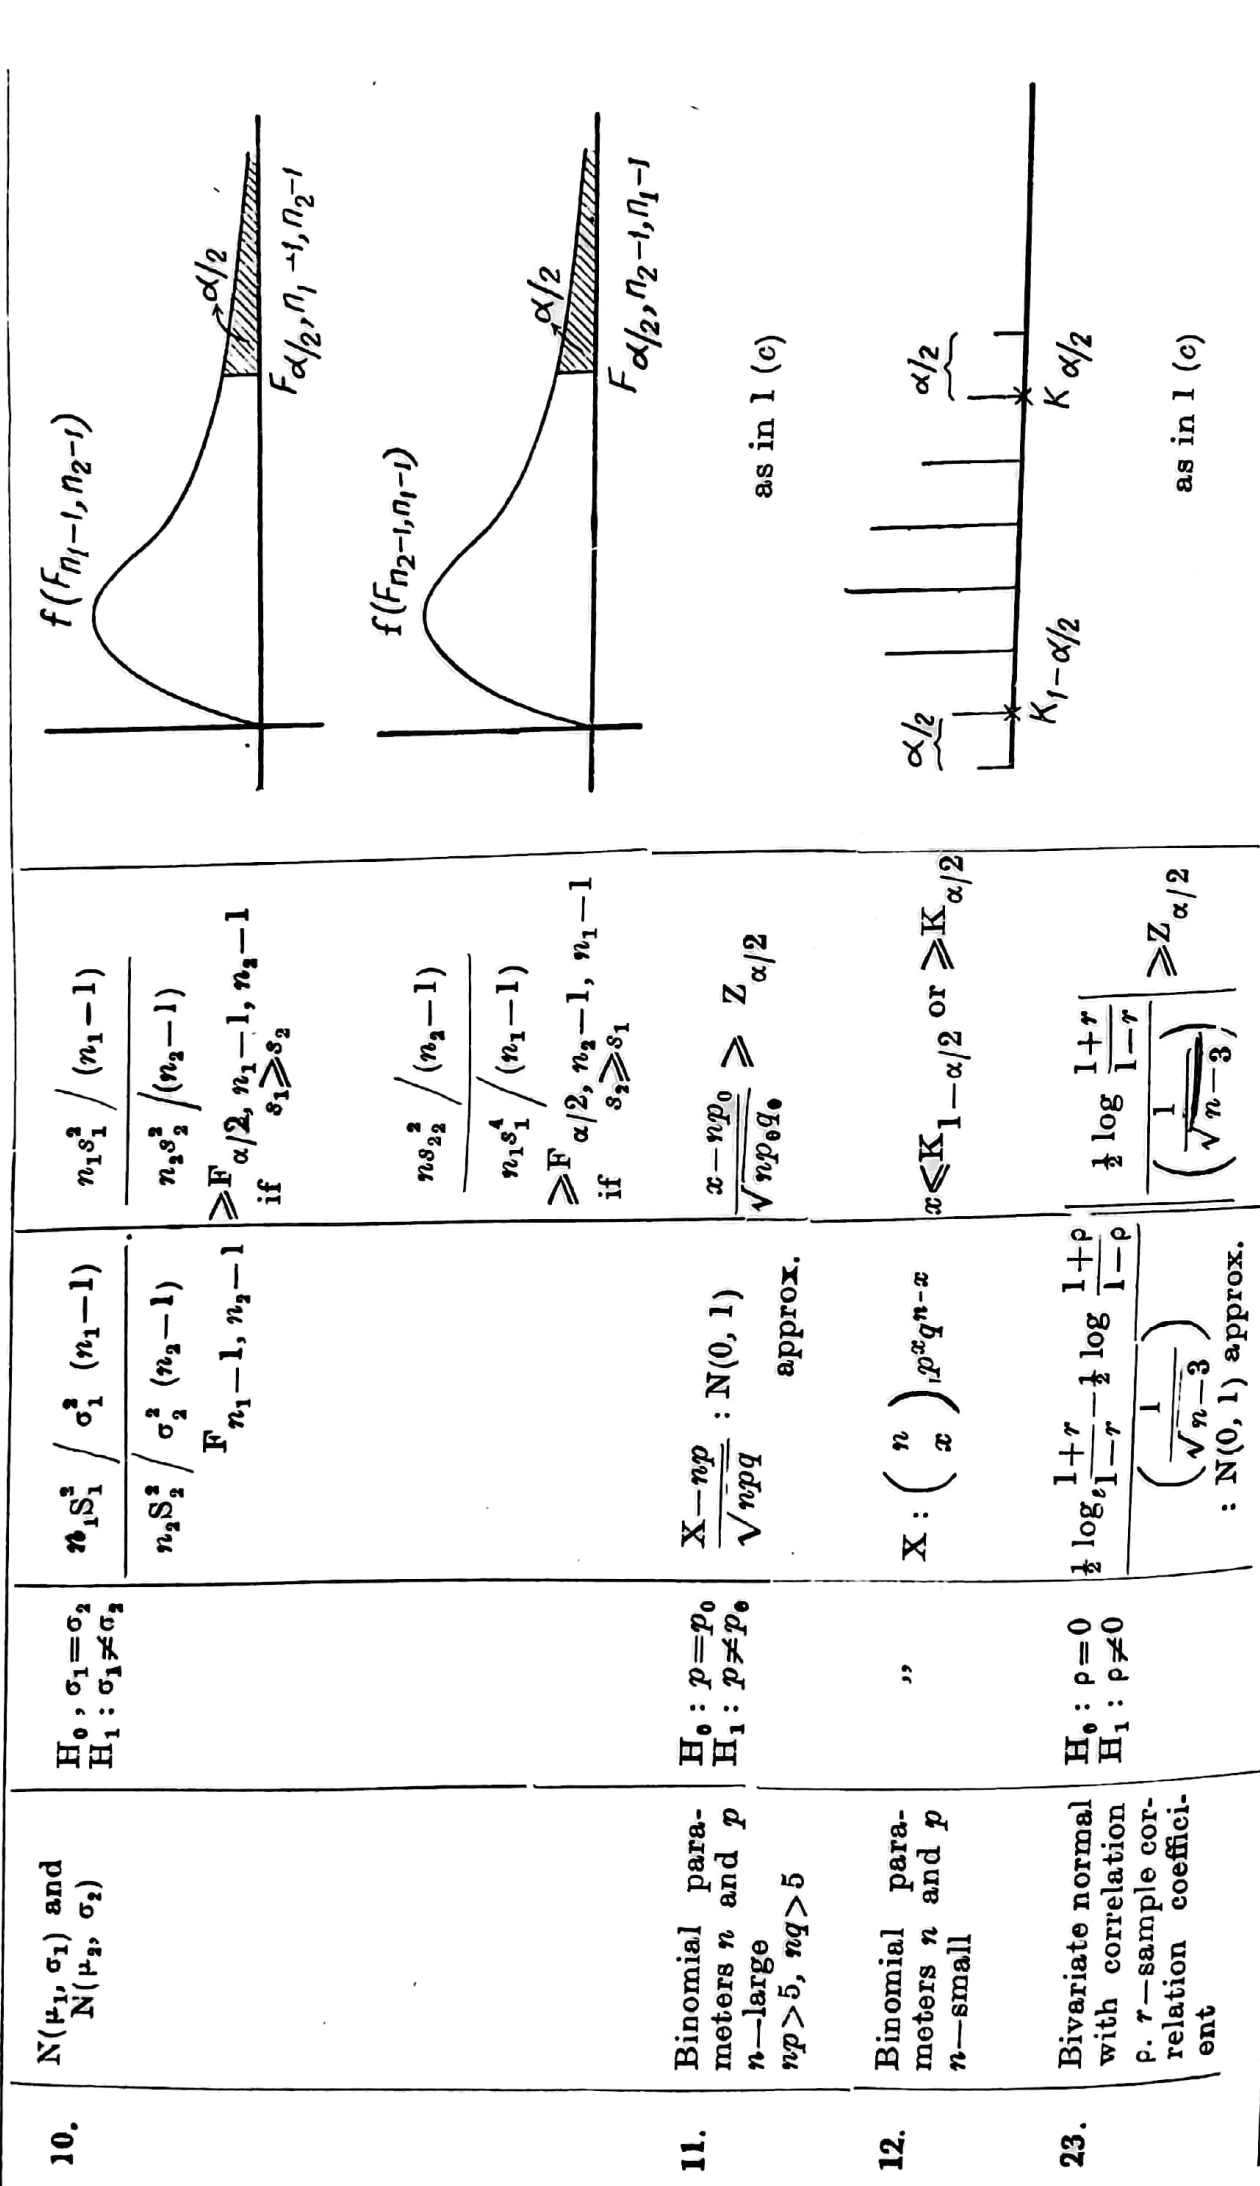 10.
N(μ₁, σ₁) and
N(μ₂, σ₂)
H₀ , σ₁=σ₂
H₁ : σ₁≠σ₂
n₁S₁² / σ₁² (n₁−1)
n₂S₂² / σ₂² (n₂−1)
F n₁−1, n₂−1
n₁s₁² / (n₁−1)
n₂s₂² / (n₂−1)
⩾F α/2, n₁−1, n₂−1
if s₁⩾s₂
f(Fn₁−1, n₂−1)
α/2
Fα/2, n₁−1, n₂−1
ns₂₂² / (n₂−1)
n₁s₁⁴ / (n₁−1)
⩾F α/2, n₂−1, n₁−1
if s₂⩾s₁
f(Fn₂−1, n₁−1)
α/2
Fα/2, n₂−1, n₁−1
11.
Binomial para-
meters n and p
n—large
np>5, nq>5
H₀ : p=p₀
H₁ : p≠p₀
X−np
√npq
: N(0, 1)
approx.
x−np₀
√np₀q₀
⩾ Z α/2
as in 1 (c)
12.
Binomial para-
meters n and p
n—small
,,
X : ( n x ) , pˣqⁿ⁻ˣ
x⩽K 1−α/2 or ⩾K α/2
α/2
α/2
K₁−α/2
K α/2
23.
Bivariate normal
with correlation
ρ. r—sample cor-
relation coeffici-
ent
H₀ : ρ=0
H₁ : ρ≠0
½ logₑ 1+r/1−r − ½ log 1+ρ/1−ρ
( 1/√n−3 )
: N(0, 1) approx.
½ log 1+r/1−r
( 1/√n−3 )
⩾Z α/2
as in 1 (c)